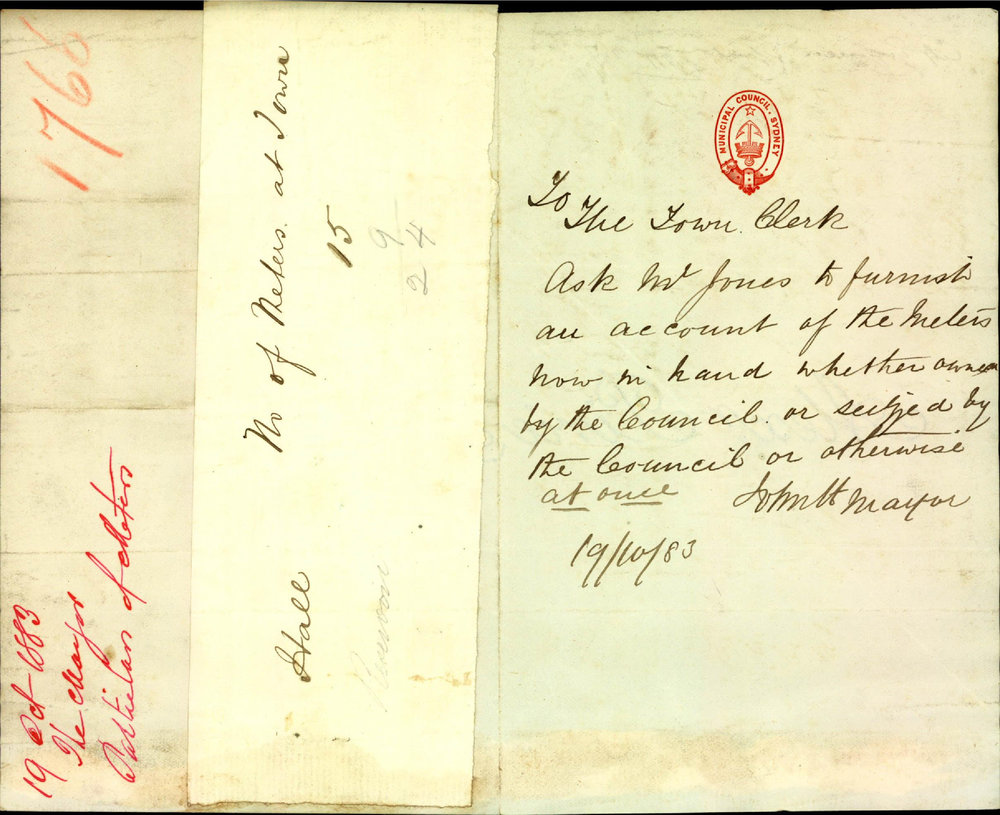 1768
19 Oct 1883
The Mayor
Particulars of Meters
No of Meters at Town
Hall 15
9
24
MUNICIPAL COUNCIL. SYDNEY
To
The Town Clerk
Ask Mr Jones to furnish
an account of the Meters
now in hand whether owned
by the Council or seitzed by
the Council or otherwise
at once
Mayor
19/10/83